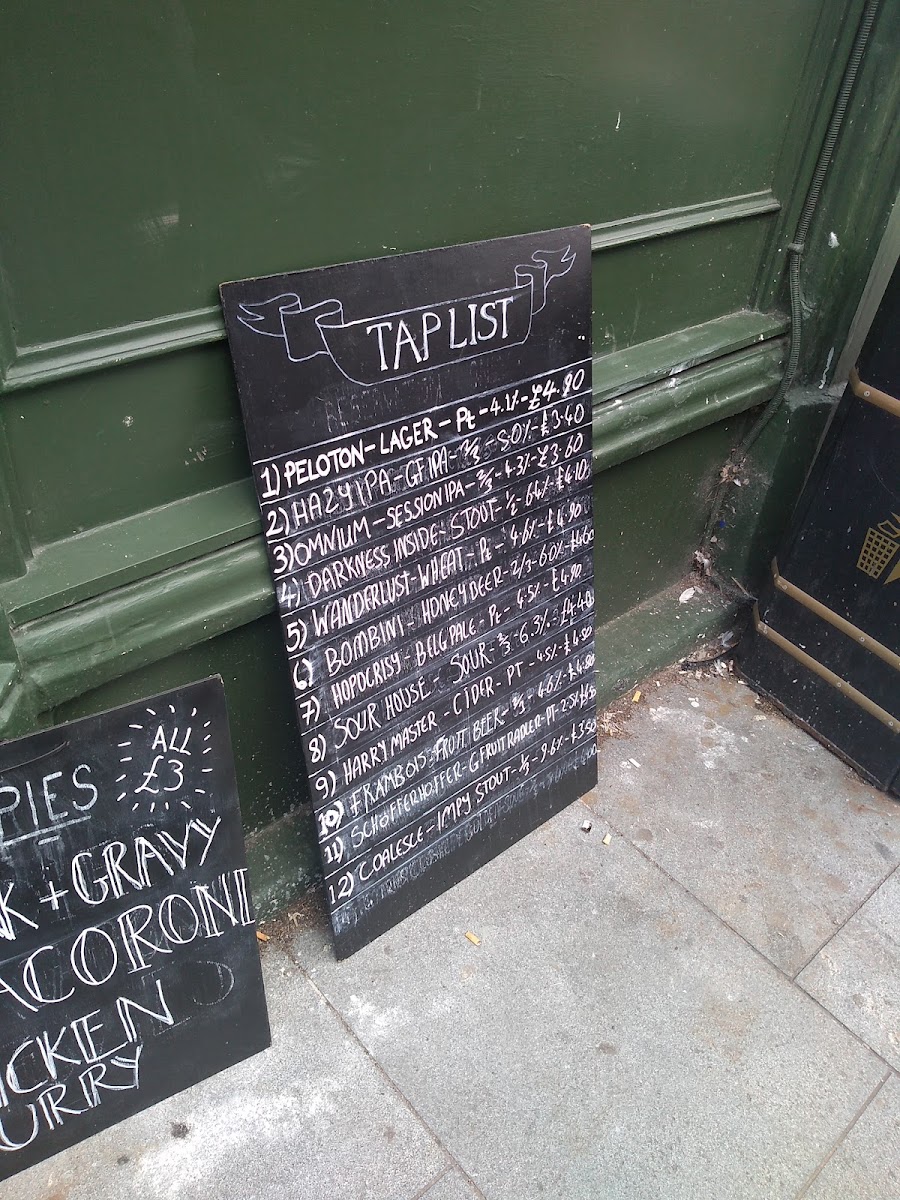 TAP LIST
1) PELOTON - LAGER - Pt - 4.1% - £4.90
2) HAZY IPA - GF IPA - 2/3 - 5.0% - £3.40
3) OMNIUM - SESSION IPA - 2/3 - 4.3% - £3.60
4) DARKNESS INSIDE - STOUT - 1/2 - 6.4% - £4.10
5) WANDERLUST - WHEAT - Pt - 4.6% - £4.90
6) BOMBINI - HONEY DEER - 2/3 - 6.0% - £4.60
7) HOPOCRISY - BELG PALE - Pt - 4.5% - £4.90
8) SOUR HOUSE - SOUR - 2/3 - 6.3% - £4.40
9) HARRY MASTER - CIDER - PT - 4.5% - £4.80
10) FRAMBOIS - FRUIT BEER - 4.6% -
11) SCHÖFFERHOFFER - GFRUIT RADLER - PT - 2.5%
12) COALESCE - IMPY STOUT - 9.6% - £3.50
PIES
ALL
£3
K + GRAVY
ACORONI
ICKEN
URRY